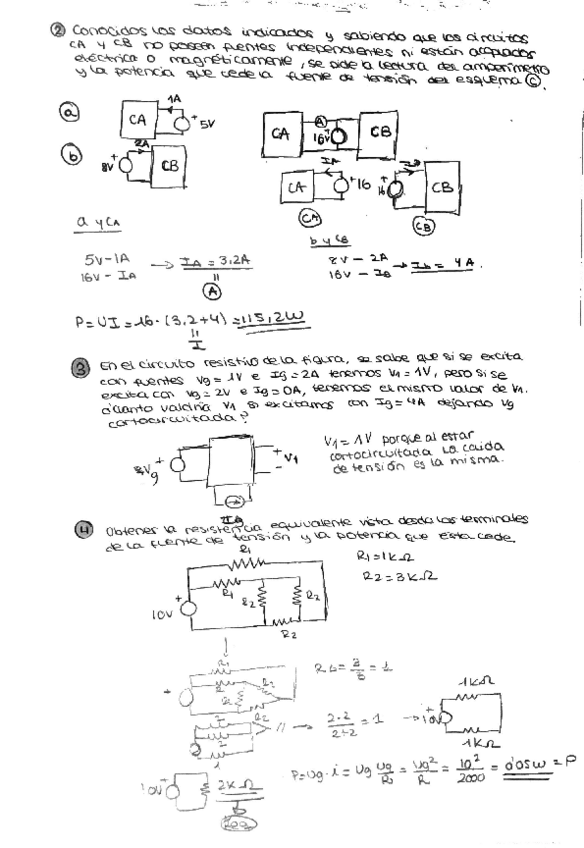 ② Conocidos los datos indicados y sabiendo que los circuitos
CA y CB no poseen fuentes independientes ni están acoplados
eléctrica o magnéticamente, se pide la lectura del amperímetro
y la potencia que cede la fuente de tensión del esquema Ⓒ.
ⓐ CA 1A + 5V
CA A 16V + CB
ⓑ 8V + 2A CB
CA IA + 16
CA
16 + CB
CB
a y CA
b y CB
5V - 1A
16V - IA → IA = 3,2A
"
A
8V - 2A
16V - IB → Ib = 4A.
P = UI = 16 · (3,2+4) = 115,2W
"
I
③ En el circuito resistivo de la figura, se sabe que si se excita
con fuentes Vg = 1V e Ig = 2A tenemos V1 = 1V, pero si se
excita con Vg = 2V e Ig = 0A, tenemos el mismo valor de V1.
¿Cuanto valdría V1 si excitamos con Ig = 4A dejando Vg
cortocircuitada?
Vg + + V1 -
Ig
V1 = 1V porque al estar
cortocircuitada la caida
de tensión es la misma.
④ Obtener la resistencia equivalente vista desde los terminales
de la fuente de tensión y la potencia que esta cede.
R1 = 1KΩ
R2 = 3KΩ
R1
R1 R2 R2
10V +
R2
R1
R2
= 3/3 = 1
// → 2·2/2+2 = 1 → 10V
1KΩ
1KΩ
10V + 2KΩ
Req
P = Ug · i = Ug Ug/R = Ug²/R = 10²/2000 = 0'05W = P